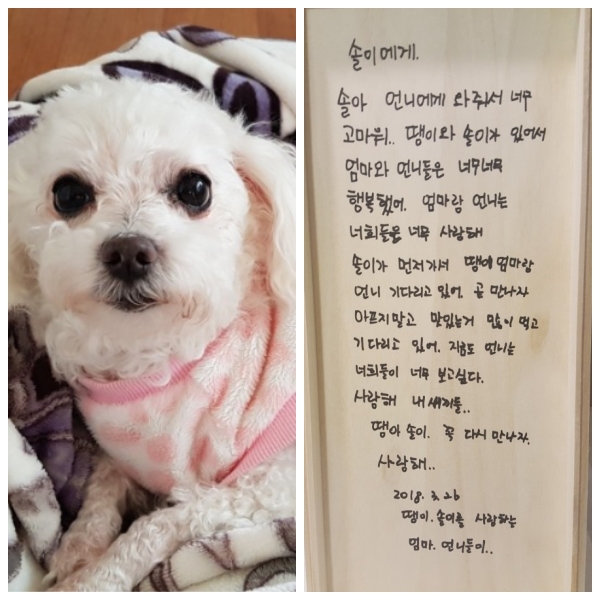 솔이에게.
솔아 언니에게 와줘서 너무
고마워.. 땡이와 솔이가 있어서
엄마와 언니들은 너무너무
행복했어. 엄마랑 언니는
너희들을 너무 사랑해
솔이가 먼저가서 땡이 엄마랑
언니 기다리고 있어. 곧 만나자
아프지말고 맛있는거 많이 먹고
기다리고 있어. 지금도 언니는
너희들이 너무 보고싶다.
사랑해 내새끼들..
땡아 솔이. 꼭 다시 만나자.
사랑해..
2018. 3. 26
땡이. 솔이를 사랑하는
엄마. 언니들이..